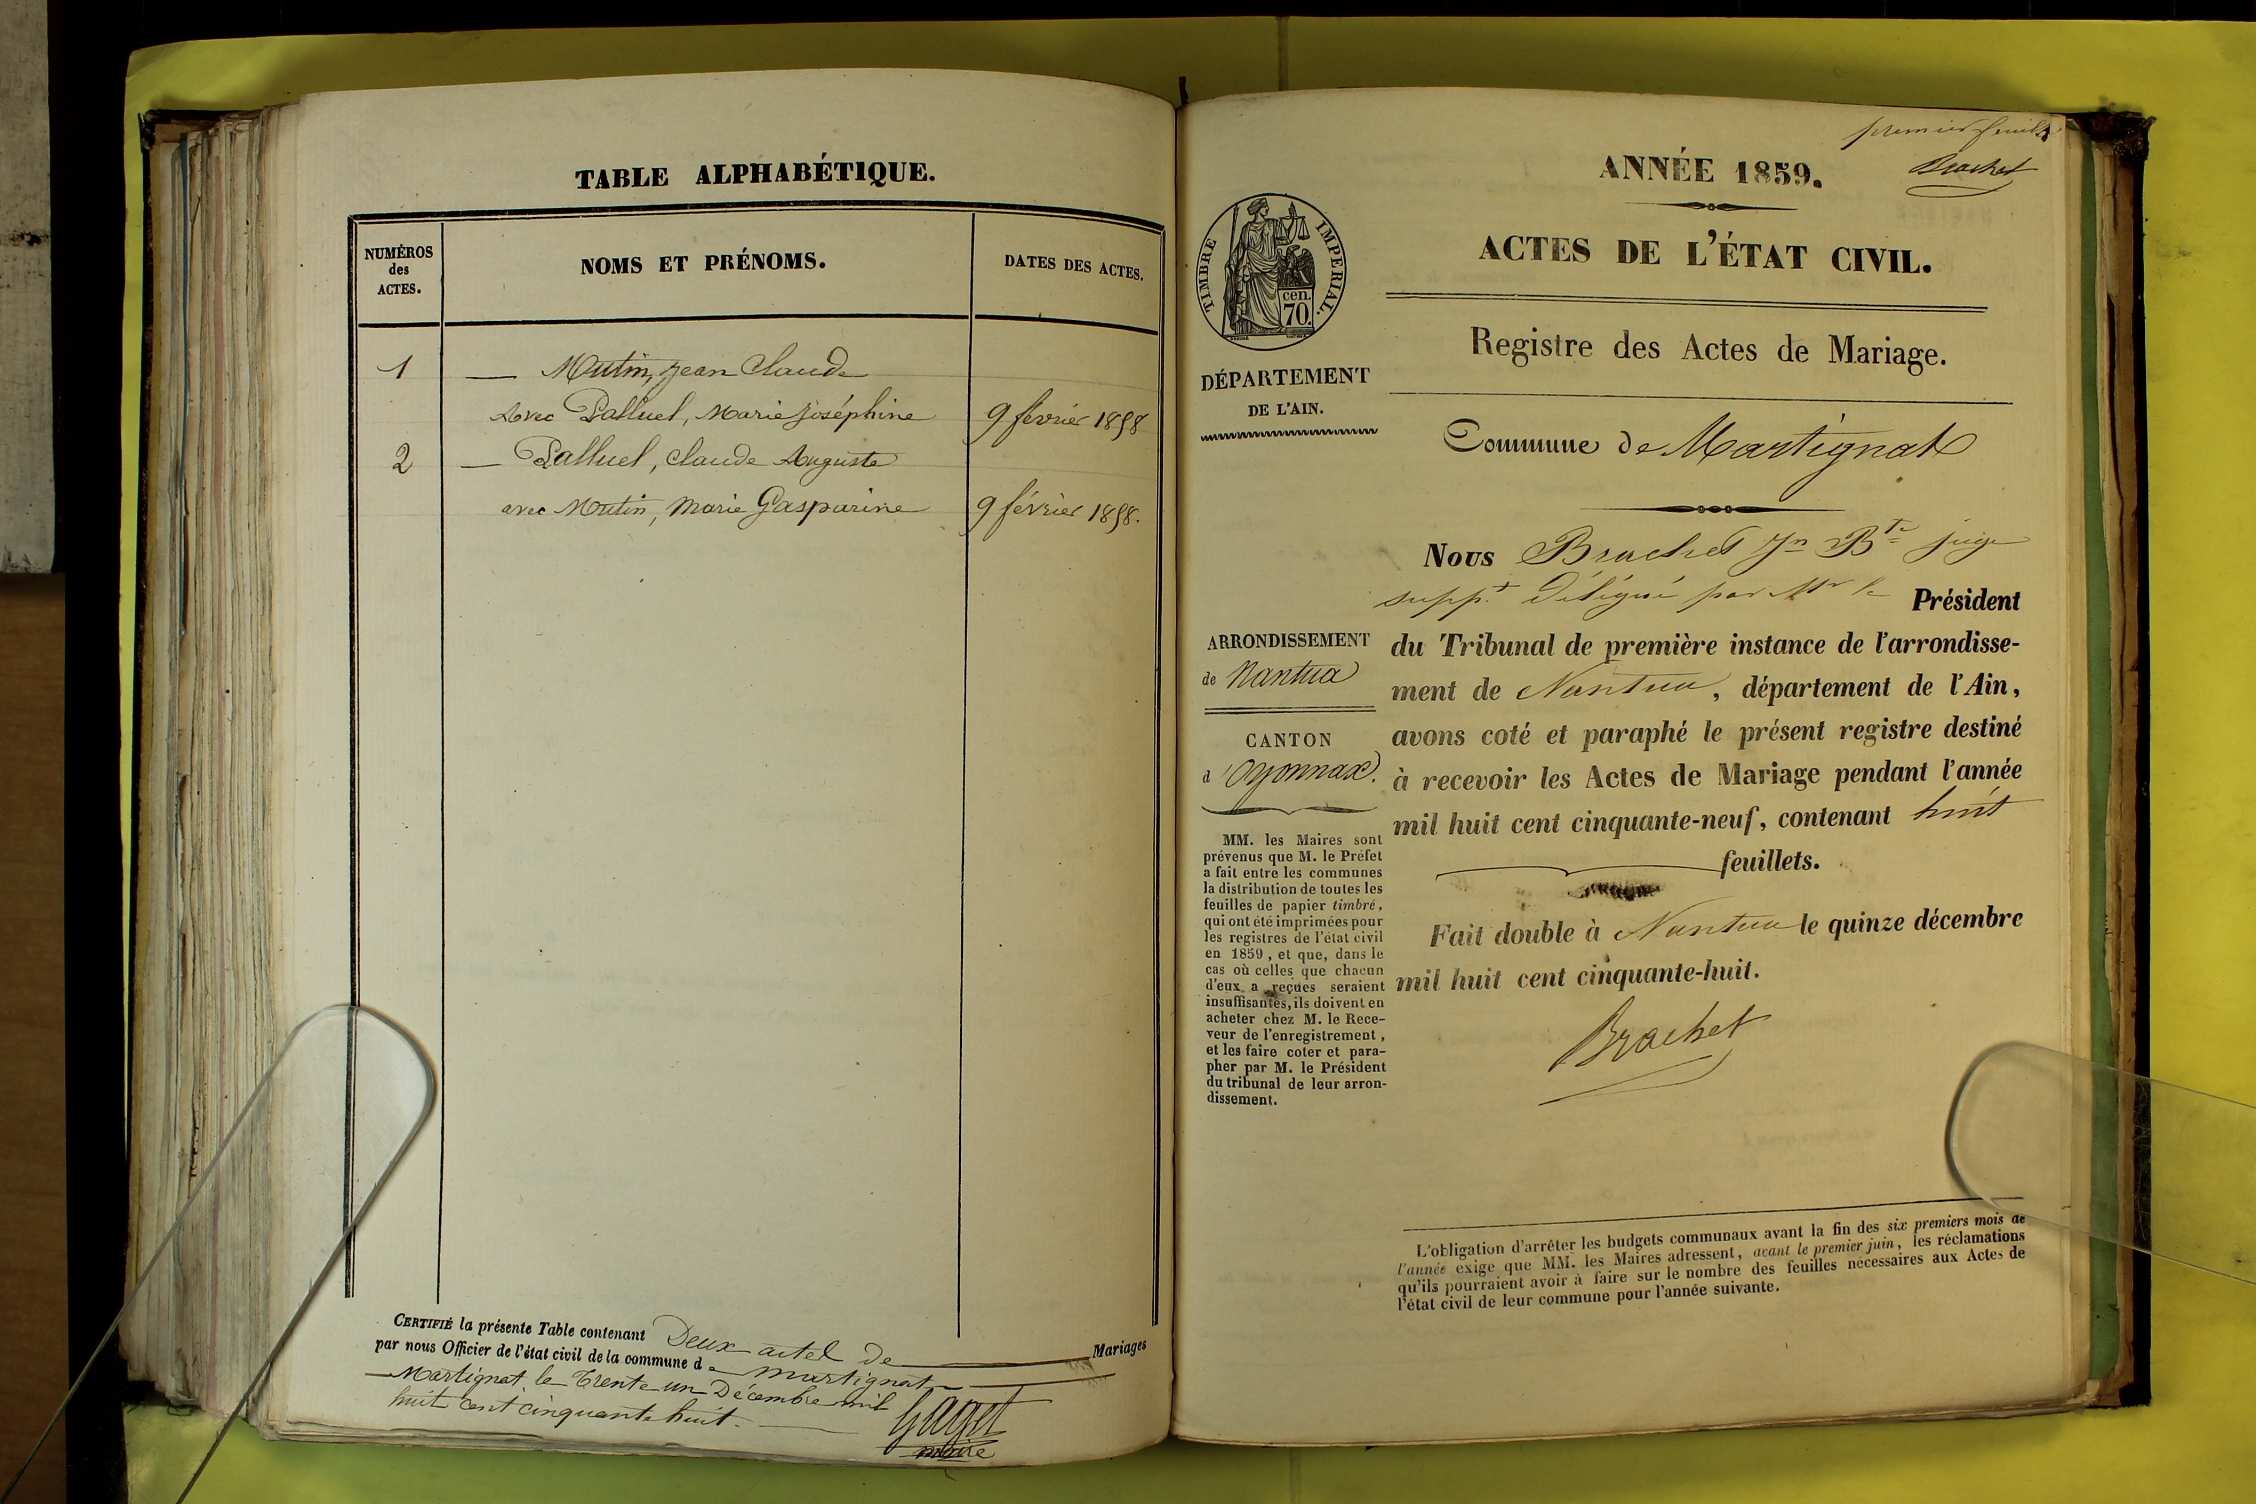 TABLE ALPHABÉTIQUE.
NUMÉROS
des
ACTES.
NOMS ET PRÉNOMS.
DATES DES ACTES.
1 — Mutin, Jean Claude
Avec Palluel, Marie Joséphine 9 février 1858
2 — Palluel, Claude Auguste
avec Mutin, Marie Gasparine 9 février 1858.
CERTIFIÉ la présente Table contenant Deux actes de Mariages
par nous Officier de l'état civil de la commune de Martignat
Martignat le Trente un Décembre mil
huit cent cinquante huit.
Gaget
maire
premier feuillet
Brachet
ANNÉE 1859.
ACTES DE L'ÉTAT CIVIL.
TIMBRE IMPERIAL.
cen.
70
Registre des Actes de Mariage.
DÉPARTEMENT
DE L'AIN.
Commune de Martignat
Nous Brachet Jn Bte juge
suppt. délégué par Mr le Président
du Tribunal de première instance de l'arrondisse-
ment de Nantua, département de l'Ain,
avons coté et paraphé le présent registre destiné
à recevoir les Actes de Mariage pendant l'année
mil huit cent cinquante-neuf, contenant huit
feuillets.
Fait double à Nantua le quinze décembre
mil huit cent cinquante-huit.
Brachet
ARRONDISSEMENT
de Nantua
CANTON
d'Oyonnax.
MM. les Maires sont
prévenus que M. le Préfet
a fait entre les communes
la distribution de toutes les
feuilles de papier timbré,
qui ont été imprimées pour
les registres de l'état civil
en 1859, et que, dans le
cas où celles que chacun
d'eux a reçues seraient
insuffisantes, ils doivent en
acheter chez M. le Rece-
veur de l'enregistrement,
et les faire coter et para-
pher par M. le Président
du tribunal de leur arron-
dissement.
L'obligation d'arrêter les budgets communaux avant la fin des six premiers mois de
l'année exige que MM. les Maires adressent, avant le premier juin, les réclamations
qu'ils pourraient avoir à faire sur le nombre des feuilles nécessaires aux Actes de
l'état civil de leur commune pour l'année suivante.